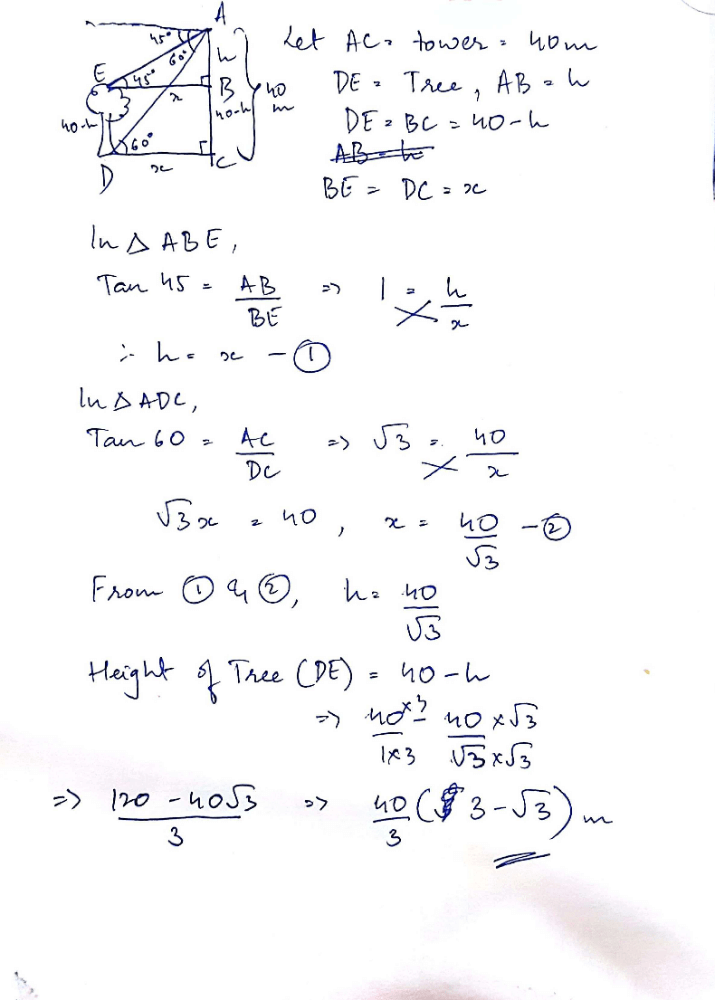 A
45°
60°
h
E
45°
B
x
40 m
40-h
40-h
60°
D
x
C
Let AC = tower = 40m
DE = Tree, AB = h
DE = BC = 40-h
AB = h
BE = DC = x
In △ ABE,
Tan 45 = AB/BE => 1 = h/x
∴ h = x - ①
In △ ADC,
Tan 60 = AC/DC => √3 = 40/x
√3x = 40, x = 40/√3 - ②
From ① & ②, h = 40/√3
Height of Tree (DE) = 40-h
=> 40×3/1×3 - 40×√3/√3×√3
=> 120-40√3/3 => 40/3 (3-√3) m